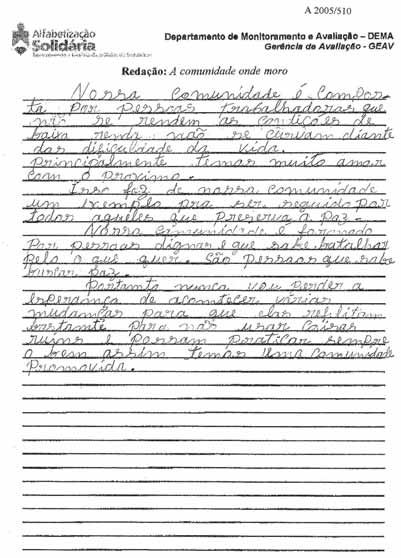 A 2005/510
Alfabetização
Solidária
Departamento de Monitoramento e Avaliação – DEMA
Gerência de Avaliação - GEAV
Redação: A comunidade onde moro
Nossa Comunidade é Compor-
ta Por Pessoas trabalhadoras que
não se rendem as condições de
baixa renda não se curvam diante
das dificuldade da vida.
Principalmente temos muito amor
com o proximo.
Isso faz de nossa comunidade
um exemplo pra ser seguido por
todos aqueles que Preserva a Paz-
Nossa Comunidade é formado
Por pessoas dignas e que sabe batalhar
Pelo o que quer. São Pessoas que sabe
buscar paz.
Portanto nunca vou perder a
esperança de acontecer várias
mudanças para que elas reflitam
bastante Para não usar coisas
ruins e Possam praticar sempre
o bem assim temos uma comunidade
Promovida.